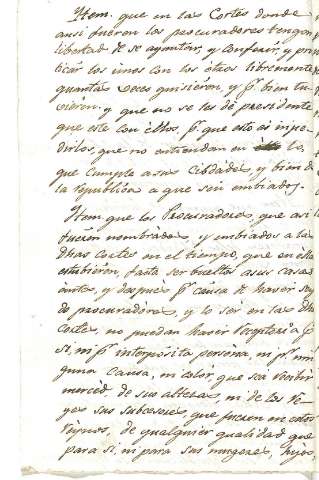 Item. que en las Cortes donde
ansi fueren los procuradores tengan
libertad de se ayuntar, y conferir, y pra
ticar los unos con los otros libremente
quantas veces quisieren, y pr. bien tu
vieren. y que no se les dé presidente
que este con ellos, pr. que esto es impe
dirlos, que no entiendan en lo,
que cumple a sus Cibdades, y bien de
la republica a que son embiados.
Item que los Procuradores, que asi
fueren nombrados y embiados a las
dhas cortes en el tiempo, que en ellas
estubieren, fasta ser bueltos a sus casas
antes, y despues pr. causa de haver sey
do procuradores, y lo ser en las dhas
Cortes, no puedan haver Receptoria pr.
si, ni pr. interposita persona, ni pr. nin
guna causa, ni color, que sea recibir
merced, de sus altezas, ni de los Re
yes sus subcesores, que fueren en estos
Reynos, de qualquier qualidad que
para si, ni para sus mugeres, hijos